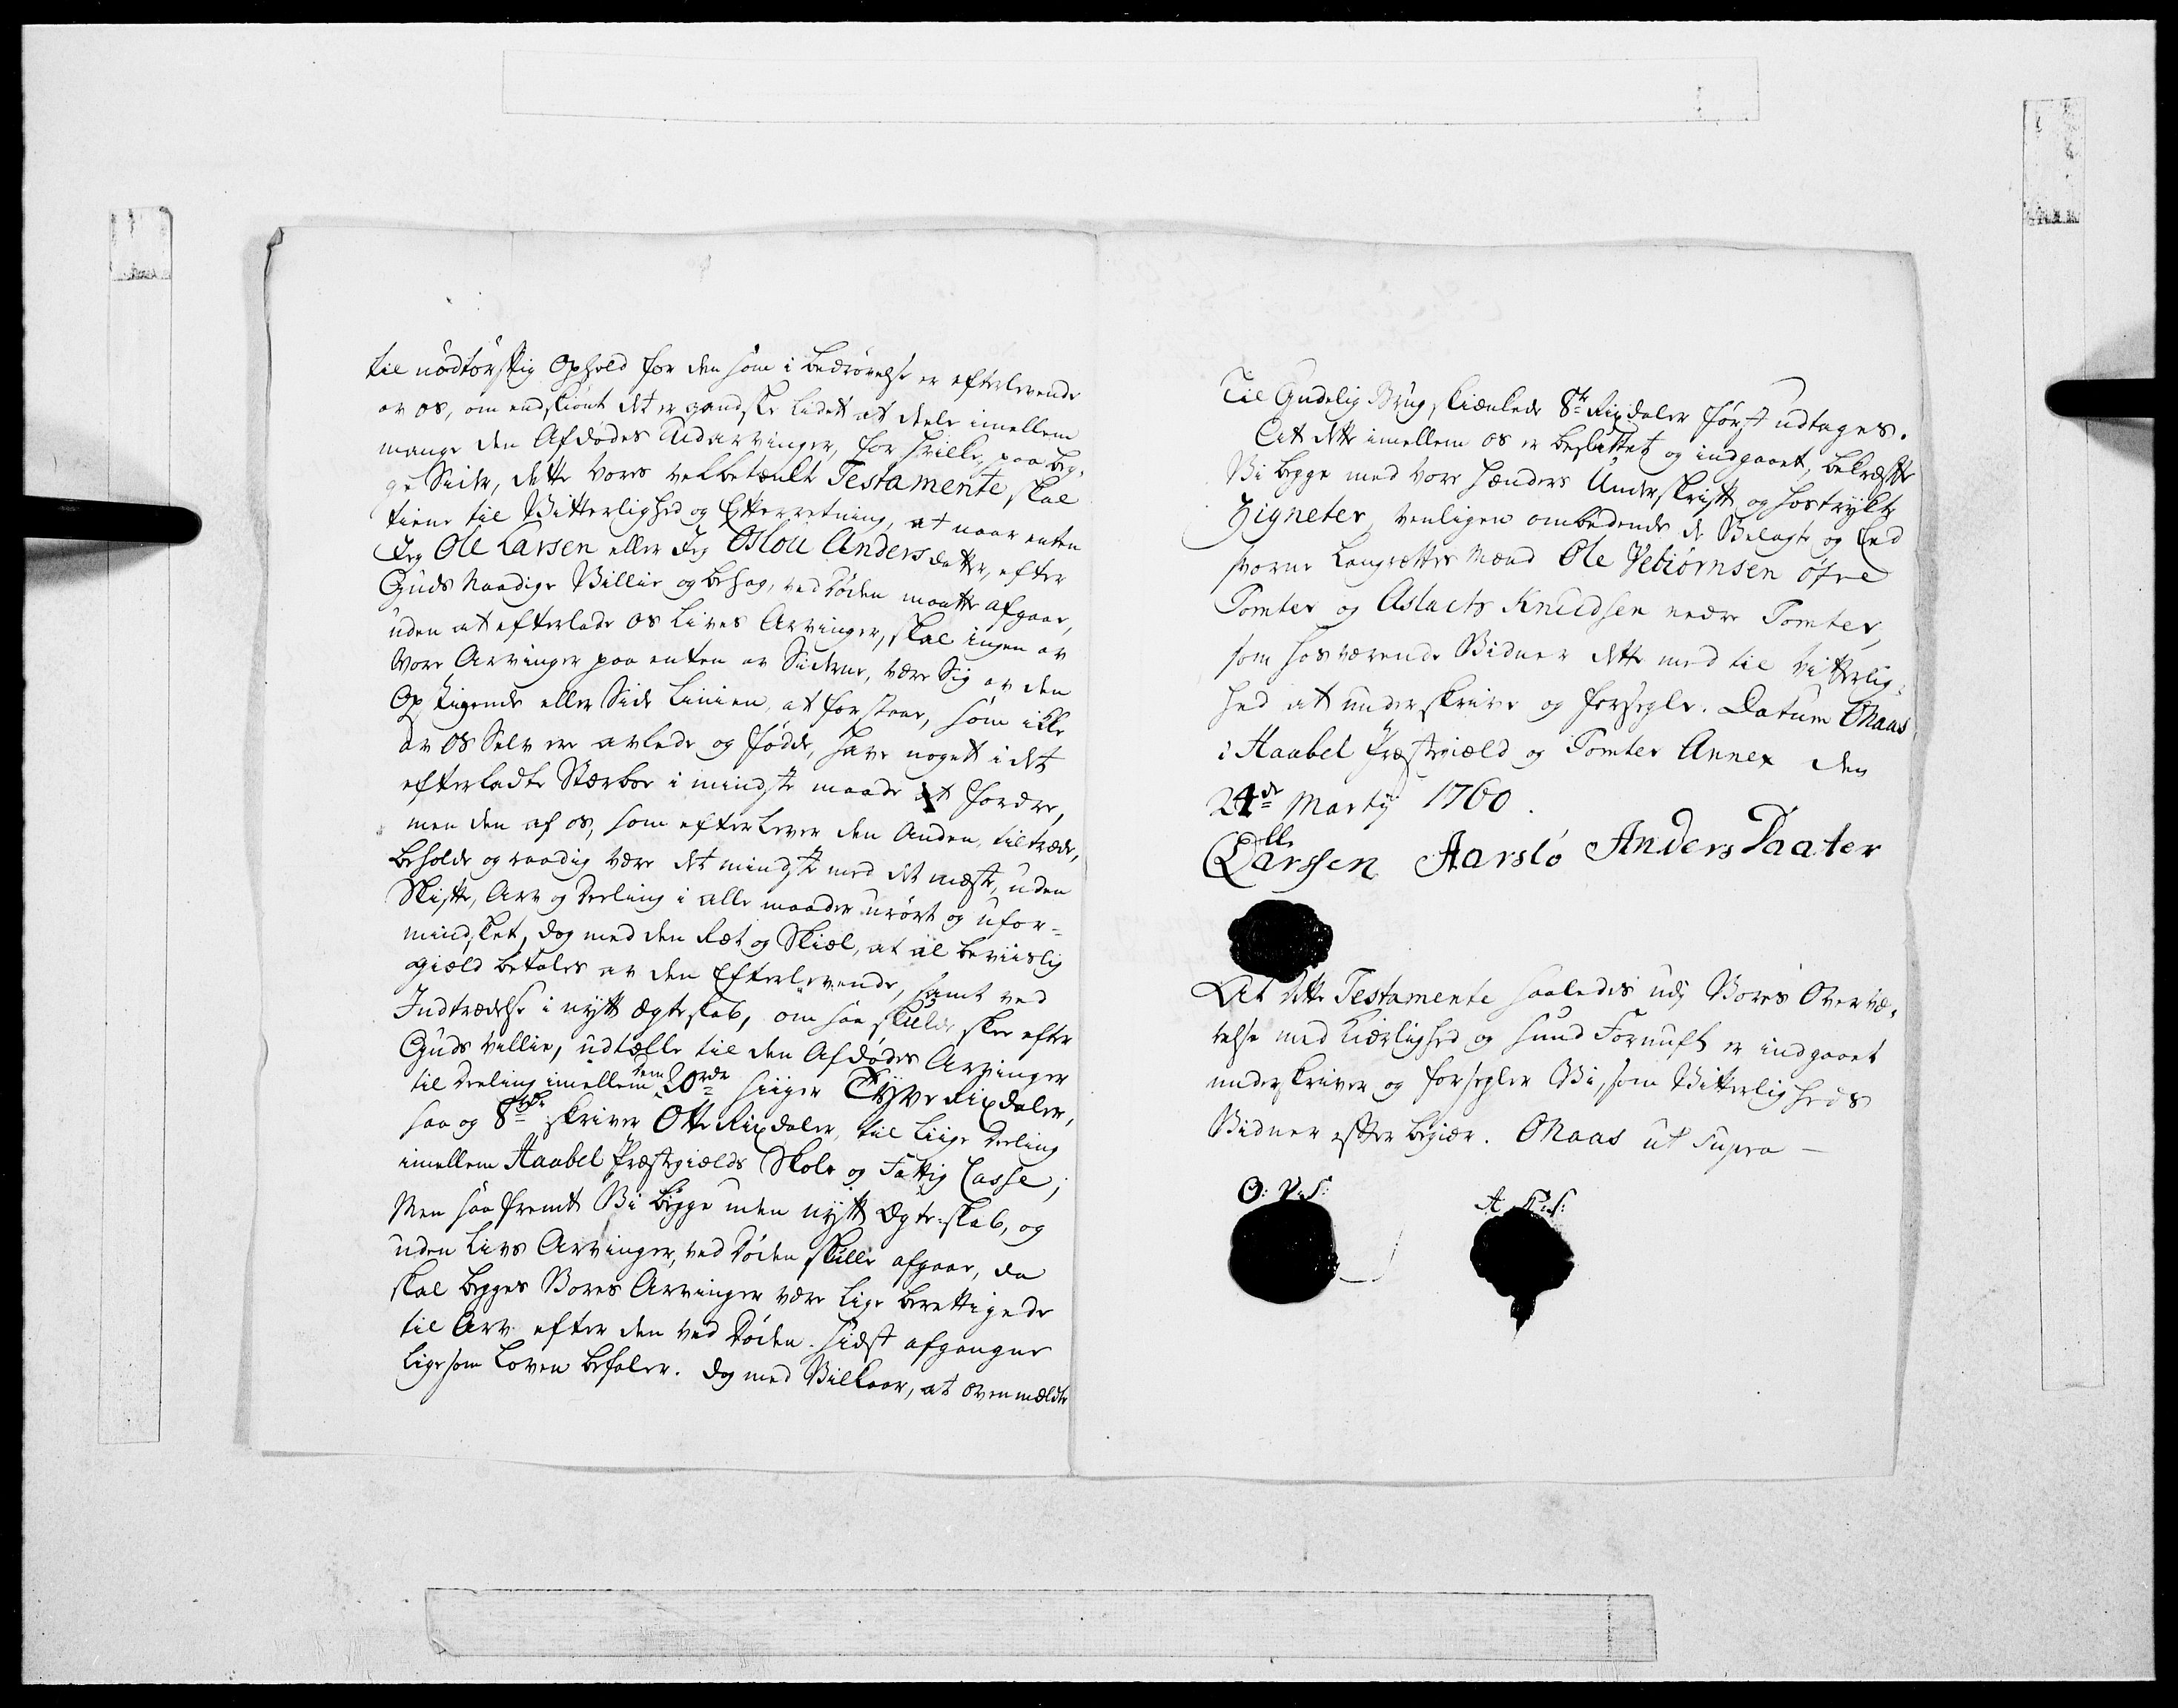 til nødtørftig Ophold for den som i bedrøvelse er efterlevende
av os, om endskiønt det er gandske lidet at deele imellem
mange den Afdødes Udarvinger, for hvilke, paa beg-
ge Sider, dette vores velbetænkte Testamente skal
tiene til Vitterlighed og Efterretning, at naar enten
Jeg Ole Larsen eller Jeg Oslou Andersdatter, efter
Guds Naadige Villie og behag, ved Døden maatte afgaae,
uden at efterlade os Lives Arvinger, skal ingen av
Vore Arvinger paa enten av Siderne, være Sig av den
Opstigende eller Side Linien, at forstaae, som ikke
av os Selv ere avlede og fødde, have noget i det
efterladte Stærboe i mindste maade at fordre,
men den af os, som efterlever den Anden, tiltræde,
beholde og raadig være det mindste med det mæste, uden
Skifte, Arv og Deeling i alle maader urørt og ufor-
mindsket, dog med den Ræt og Skiæl, at al beviislig
giæld betales av den Efterlevende, samt ved
Indtrædelse i nytt Ægteskab, om saa skulde skee efter
Guds Villie, udtælle til den Afdødes Arvinger
til Deeling imellem dem 20 rdr siiger Tyve Rixdaler,
saa og 8 rdr skriver Otte Rixdaler, til liige Deeling
imellem Haabel Præstegiælds Skole og Fattig Casse;
Men saafremt Vi begge uden nytt Ægte-skab, og
uden Livs Arvinger, ved Døden skulle afgaae, da
skal begges Vores Arvinger være lige berettigede
til Arv efter den ved Døden sidst afgangne
ligesom Loven befaler. Dog med Vilkaar, at ovenmældte
Til Gudelig Brug skiænkede 8te Rixdaler først udtages.
At dette imellem os er besluttet og indgaaet, bekræfte
Vi begge med vore Hænders Underskrift og hostrykte
Zigneter, venligen ombedende de Velagte og Eed
svorne Laugrettes Mænd Ole Vebiørnsen øfre
Tomter og Aslach Knudsen nedre Tomter,
som hosværende Vidner dette med til Vitterlig-
hed at underskrive og forsegle. Datum Maas
i Haabel Præstegiæld og Tomter Annex den
24de Martij 1760.
Olle
Larssen Aarslo Anders Daater
At dette Testamente saaledes udj Vores Overvæ-
relse med Kiærlighed og sund Fornuft er indgaaet
underskriver og forsegler Vi, som Vitterligheds
Vidner efter begiær. Maas ut supra
O: V: S:
A K: S: